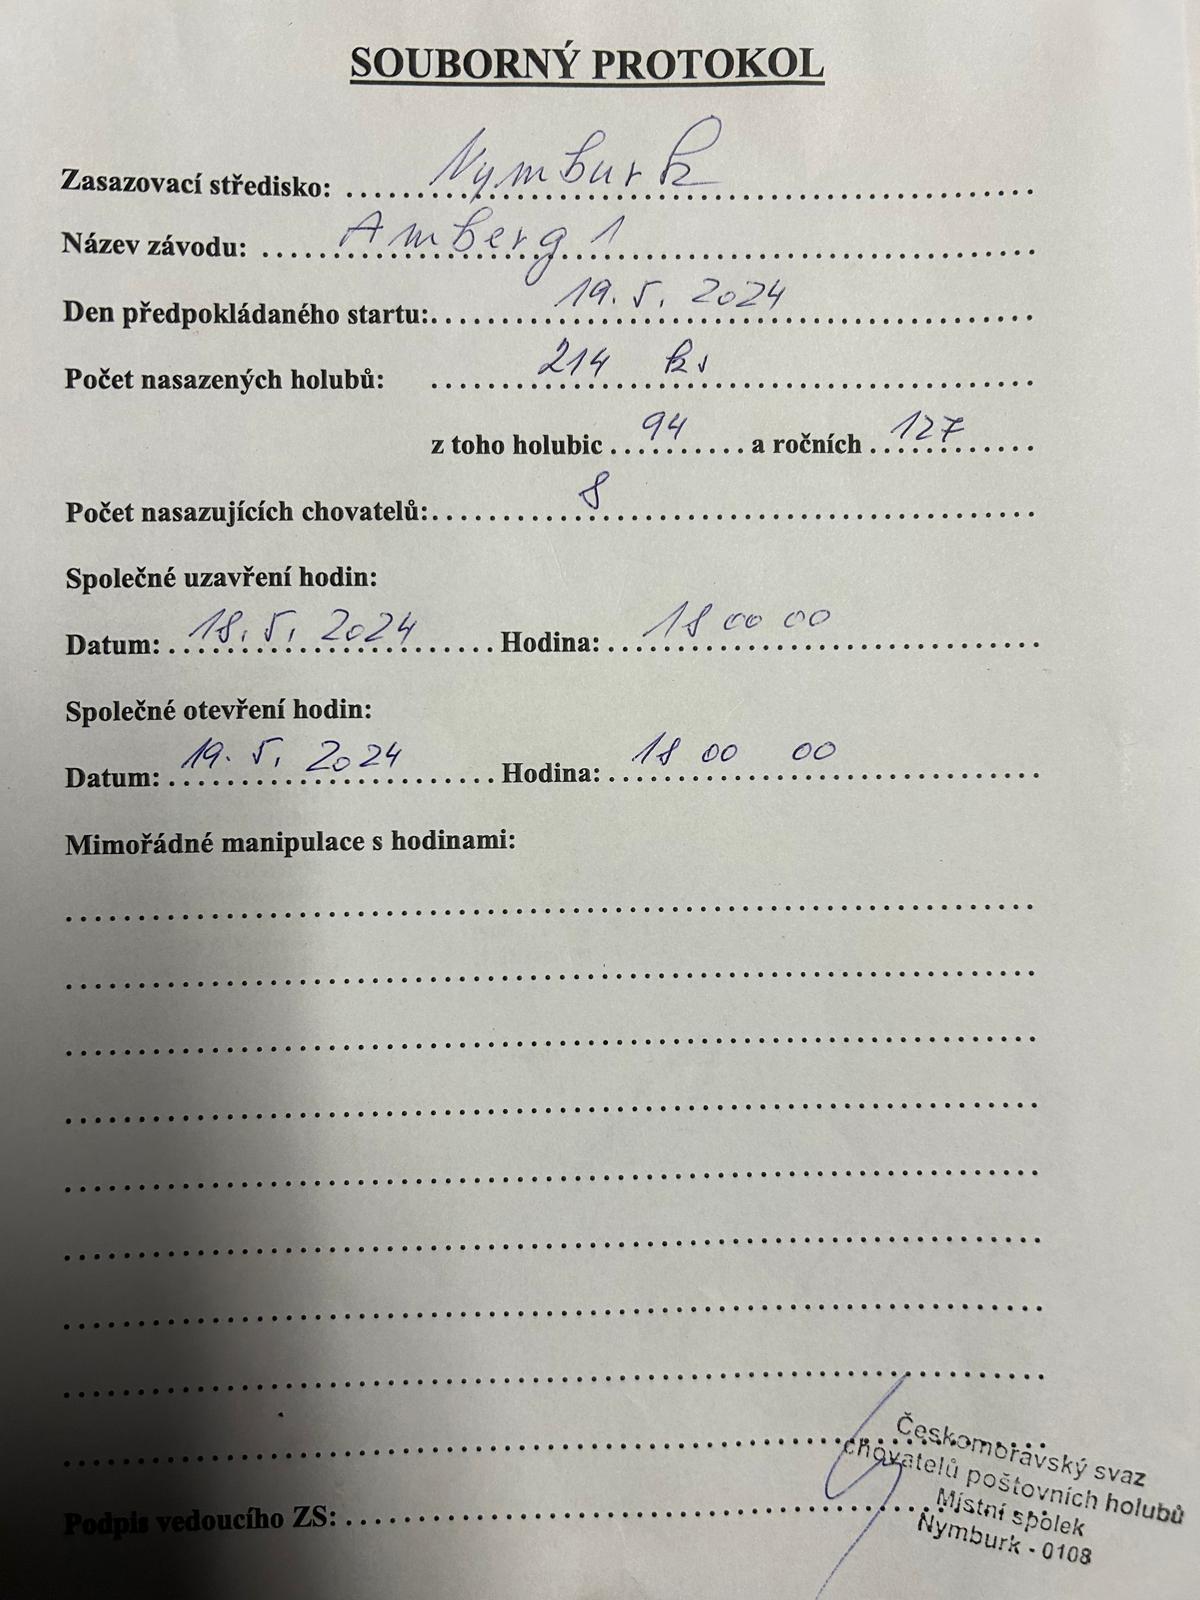 SOUBORNÝ PROTOKOL
Zasazovací středisko: Nymburk
Název závodu: Amberg 1
Den předpokládaného startu: 19. 5. 2024
Počet nasazených holubů: 214 ks
z toho holubic 94 a ročních 127
Počet nasazujících chovatelů: 8
Společné uzavření hodin:
Datum: 18. 5. 2024 Hodina: 18 00 00
Společné otevření hodin:
Datum: 19. 5. 2024 Hodina: 18 00 00
Mimořádné manipulace s hodinami:
Podpis vedoucího ZS:
Českomoravský svaz
chovatelů poštovních holubů
Místní spolek
Nymburk - 0108